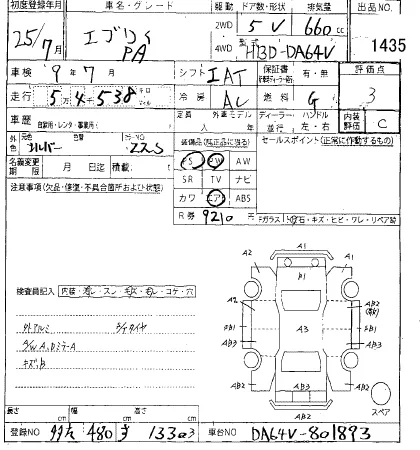 初度登録年月 車名・グレード 駆動 ドア数・形状 排気量 出品NO
25/7月 エブリイ PA 2WD 5V 660cc 1435
4WD 型式 HBD-DA64V
車検 9年7月 シフト IAT 保証書 有・無 評価点 3
走行 5万4千538 キロ マイル 冷房 AC 燃料 G
車歴 自家用・レンタ・事業用 定員 人 外車モデル 年 ディーラー 並行 ハンドル 左・右 内装評価 C
外色 元色 シルバー 色替 カラーNO Z2S 装備品(純正品に○) セールスポイント(正常に作動するもの)
名義変更期限 月 日迄 積載 PS PW AW
注意事項(欠品・修復・不具合箇所および状態) SR TV ナビ
カワ エアB ABS
R券 9210円
Fガラス 飛石・キズ・ヒビ・ワレ・リペア跡
検査員記入 内装・汚レ・スレ・キズ・モレ・コゲ・穴
A1
A2 A2
A2 AB2
B1 A3 B1
AB3 AB3
AB2 AB3 AB2
AB2
スペア
外アルミ タイヤ
キズ、B
長さ cm 幅 cm 高さ cm
登録NO 480 1333 車台NO DA64V-801893